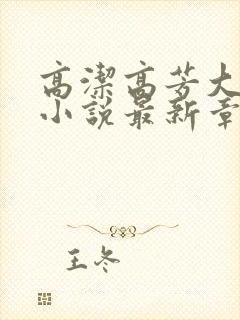 高潔高芳大
小說最新章
王冬